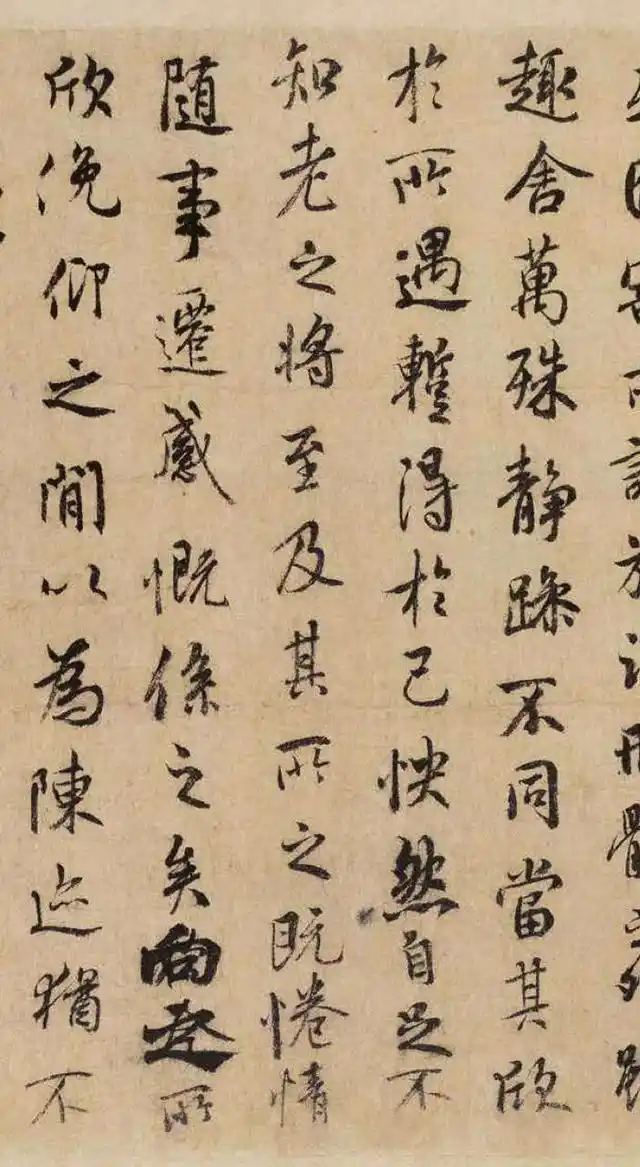 趣舍萬殊静躁不同當其欣
於所遇蹔得於己怏然自足不
知老之将至及其所之既惓情
随事遷感慨係之矣向之所
欣俛仰之閒以為陳迹猶不